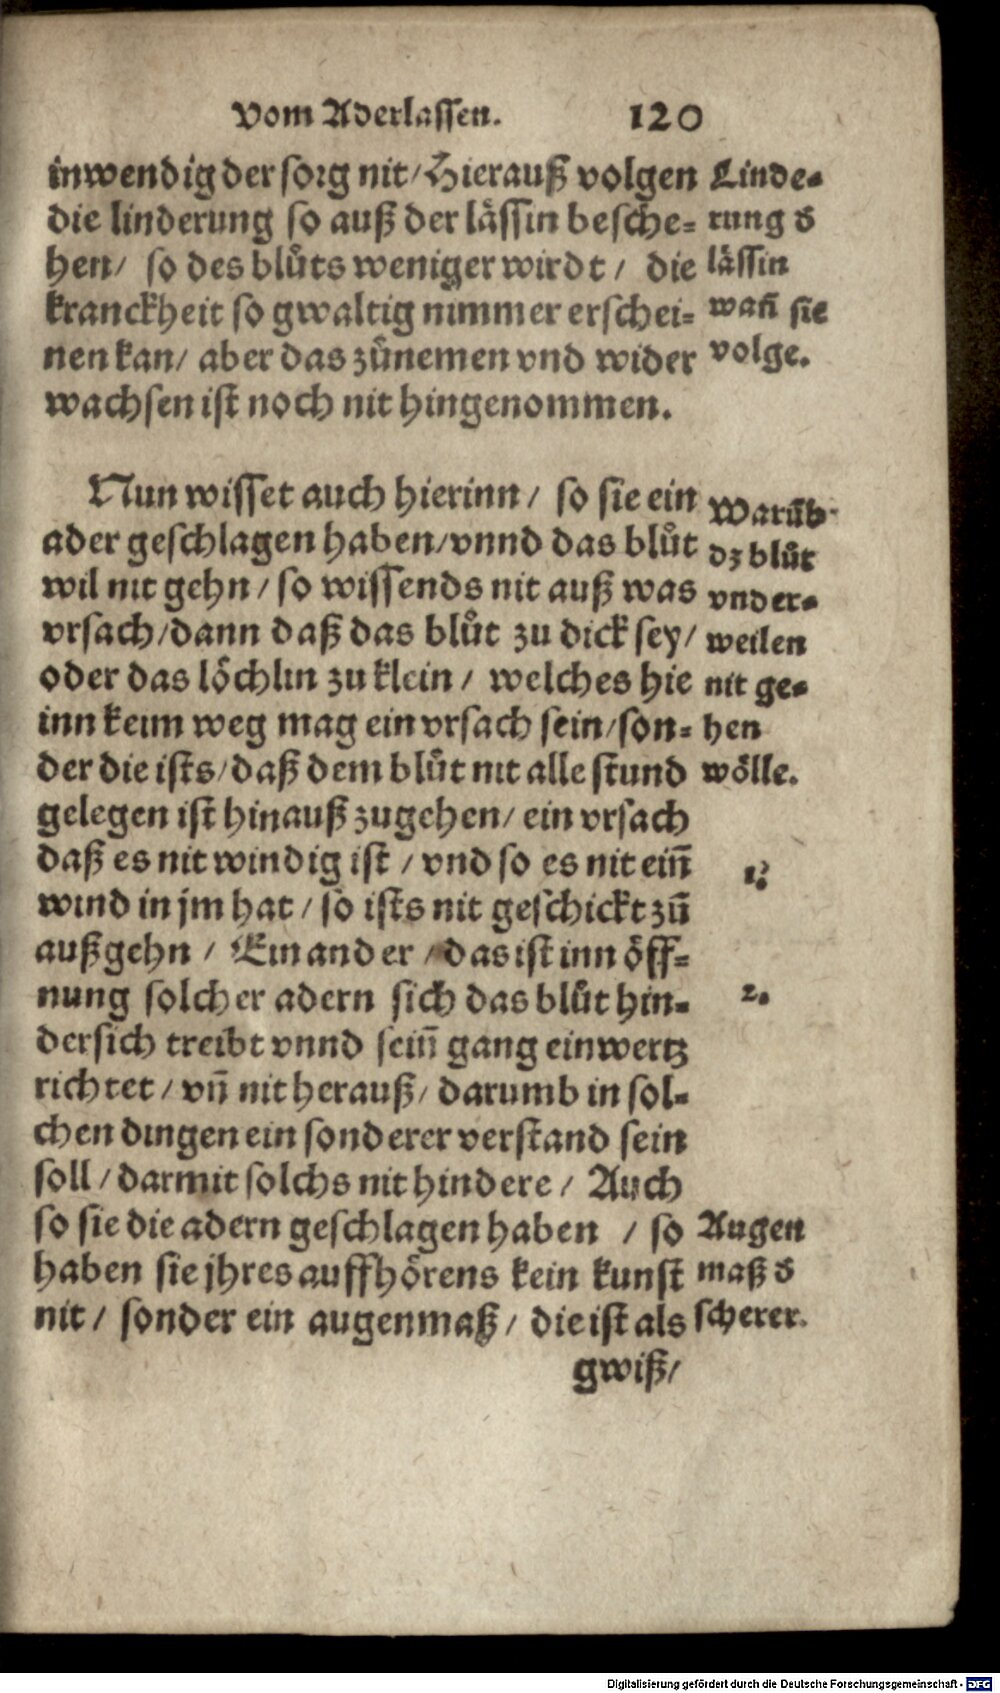 Vom Aderlassen. 120
inwendig der sorg nit / Hierauß volgen
die linderung so auß der lässin besche-
hen / so des blůts weniger wirdt / die
kranckheit so gwaltig nimmer erschei-
nen kan / aber das zůnemen vnd wider
wachsen ist noch nit hingenommen.
Linde-
rung d'
lässin
wañ sie
volge.
Nun wisset auch hierinn / so sie ein
ader geschlagen haben / vnnd das blůt
wil nit gehn / so wissends nit auß was
vrsach / dann daß das blůt zu dick sey /
oder das löchlin zu klein / welches hie
inn keim weg mag ein vrsach sein / son-
der die ists / daß dem blůt nit alle stund
gelegen ist hinauß zugehen / ein vrsach
daß es nit windig ist / vnd so es nit eiñ
wind in jm hat / so ists nit geschickt zů
außgehn / Ein ander / das ist inn öff-
nung solcher adern sich das blůt hin-
dersich treibt vnnd seiñ gang einwertz
richtet / vñ nit herauß / darumb in sol-
chen dingen ein sonderer verstand sein
soll / darmit solchs nit hindere / Auch
so sie die adern geschlagen haben / so
haben sie jhres auffhörens kein kunst
nit / sonder ein augenmaß / die ist als
Warũb
dz blůt
vnder-
weilen
nit ge-
hen
wölle.
1.
2.
Augen
maß d'
scherer.
gwiß /
Digitalisierung gefördert durch die Deutsche Forschungsgemeinschaft - DFG